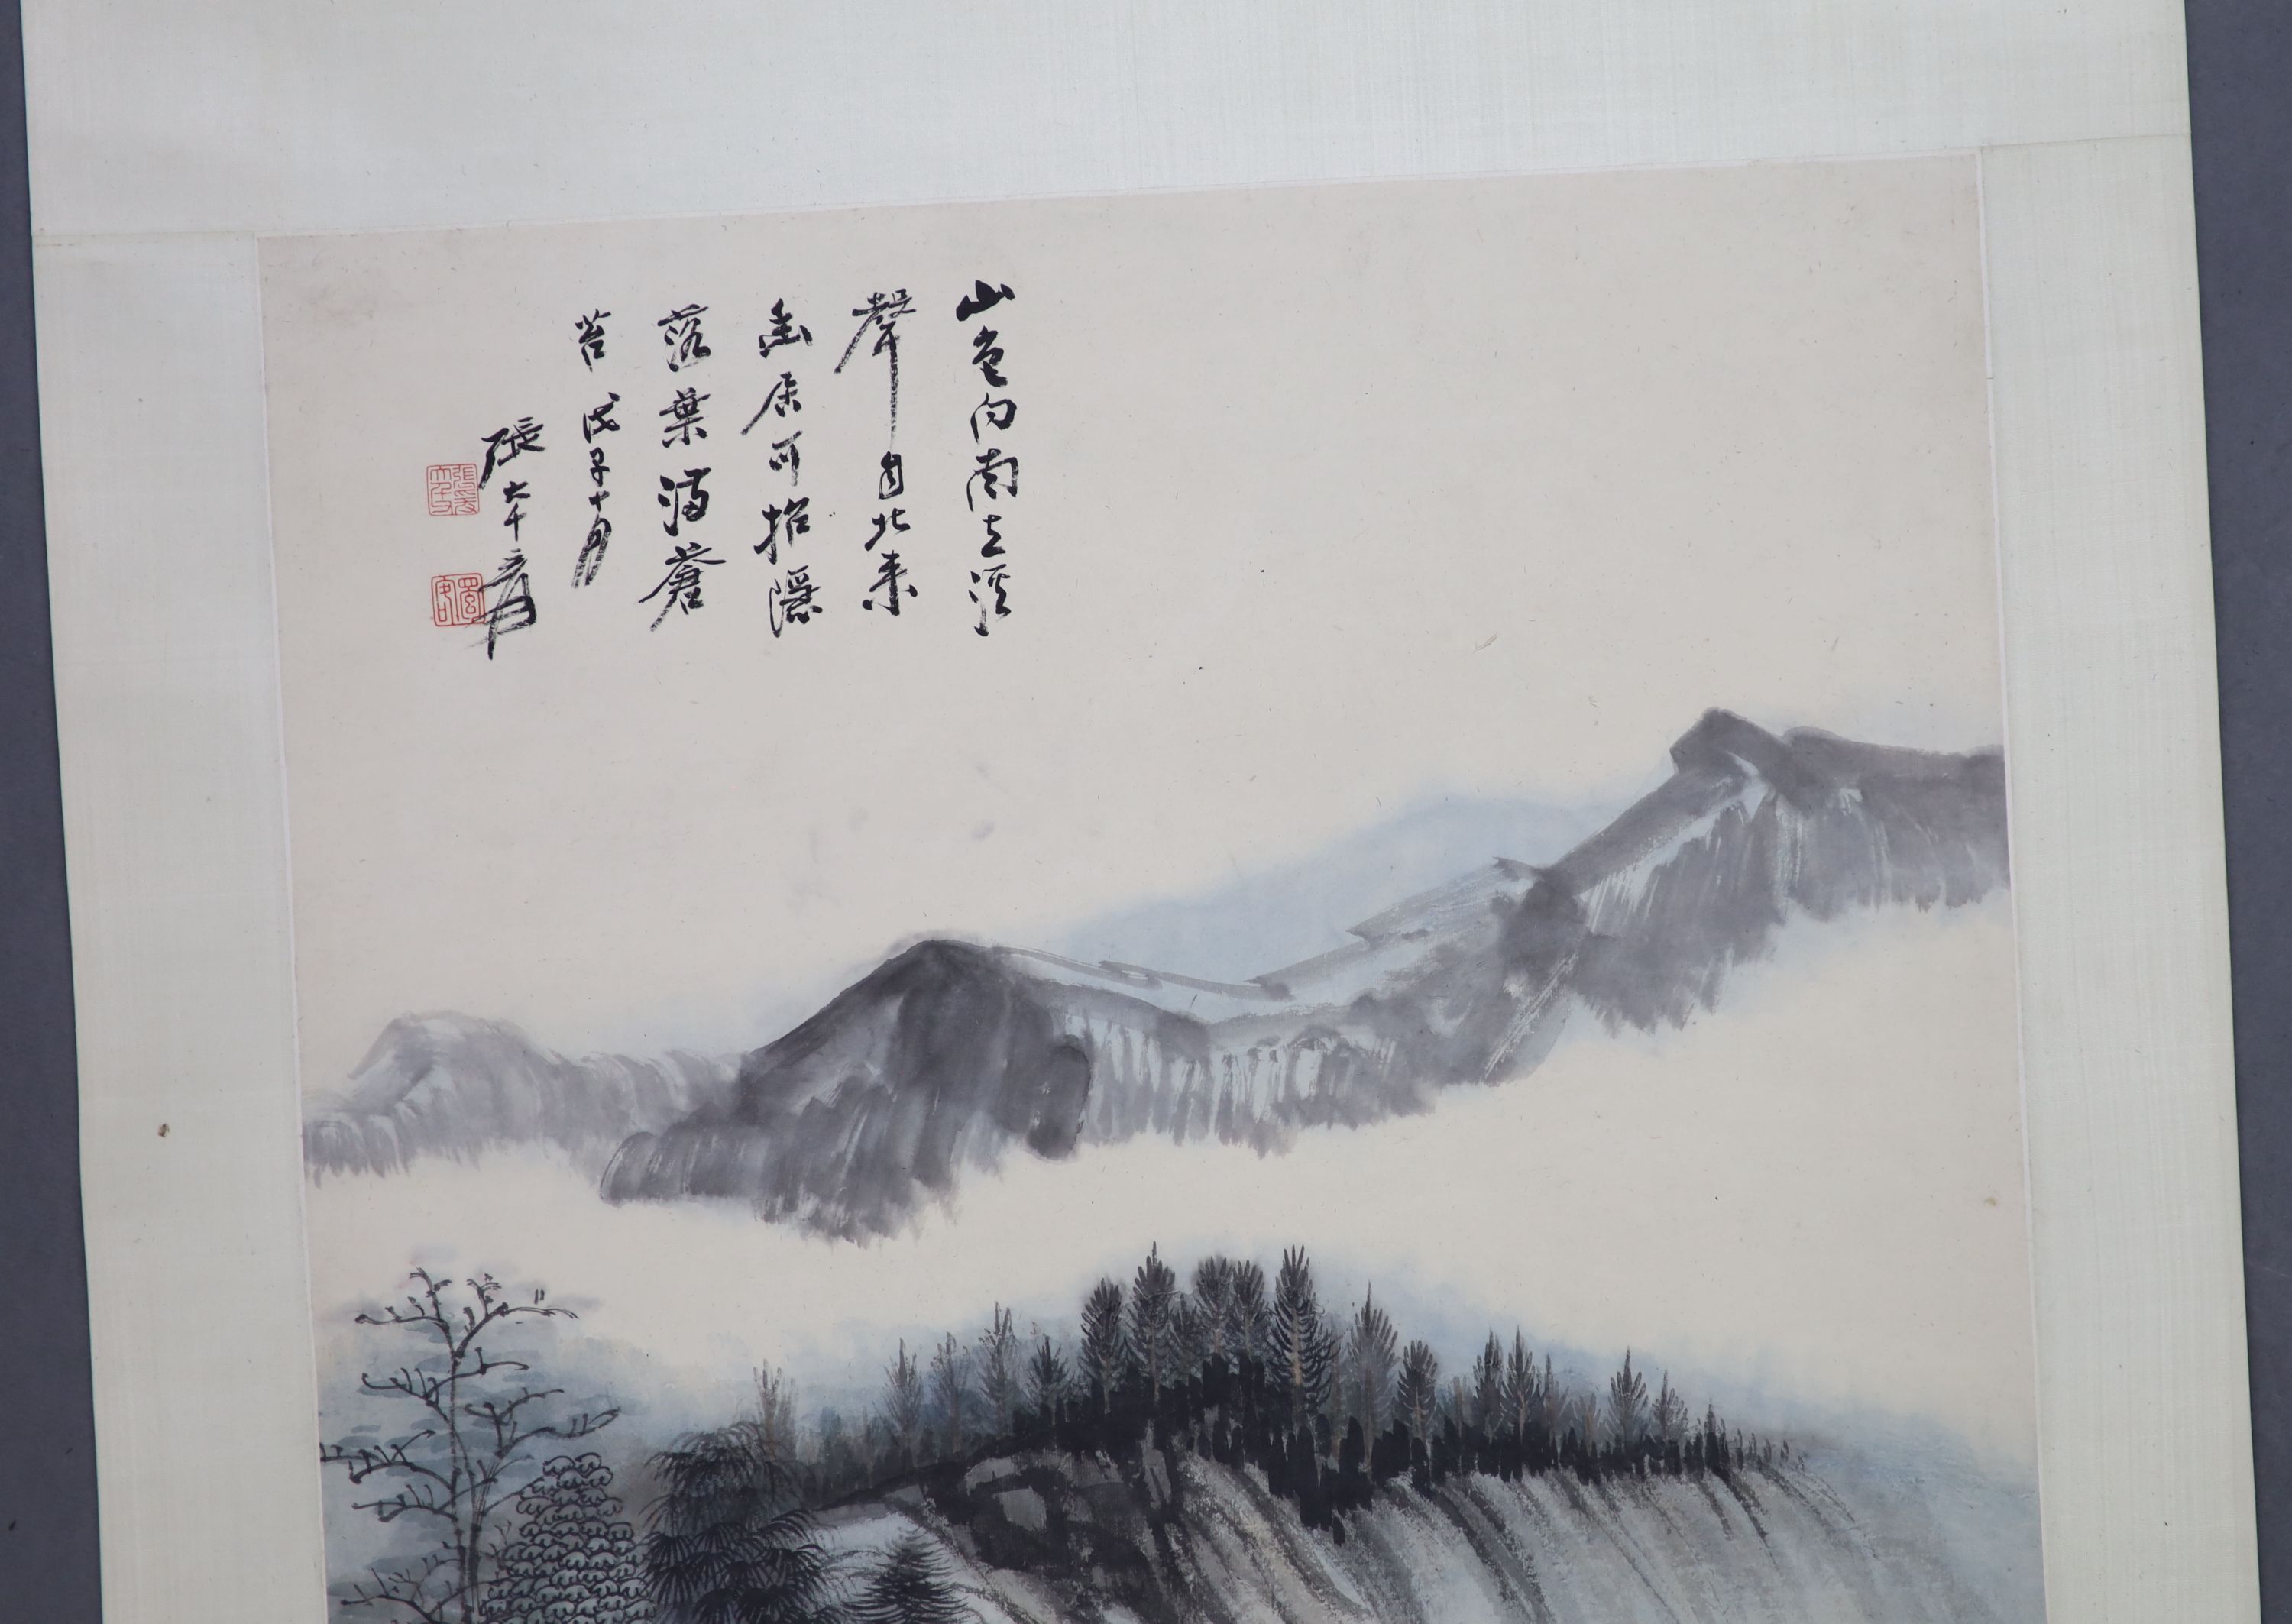 山色向南去溪
聲自北來
幽居可招隱
落葉滿蒼
苔戊子十月
張大千爰